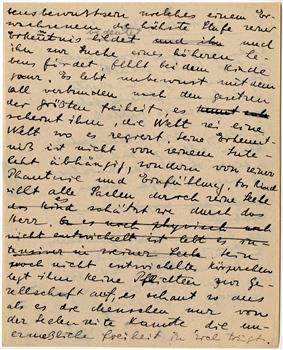 tensbewusstsein welches einem Er-
wachsenen die höchste Stufe seiner
Erkenntnis bildet und ihn
ihn zur Suche eines höheren Le-
bens fördet fehlt bei dem Kinde
ganz. Es lebt unbewusst mit dem
All verbunden nach den Gesetzen
der größten Freiheit, es
scheint ihm, die Welt sei eine
Welt wo es regiert. Seine Erkennt-
niß ist nicht von seinem Inte-
lekt abhängig, sondern von seiner
Phantasie und Einfühlung, das Kind
sieht alle Sachen durch seine Seele
das Kind schätzt wie durch das
Herz. Da es noch physisch noch
nicht entwickelt ist lebt es in-
tensiver in seiner Seele Sein
noch nicht entwickelter Körper
legt ihm keine Pflichten zur Ge-
sellschaft auf, es schaut so aus
als es die Menschen nur von
der Seelenseite kannte, die un-
ermeßliche Freiheit in sich trägt.